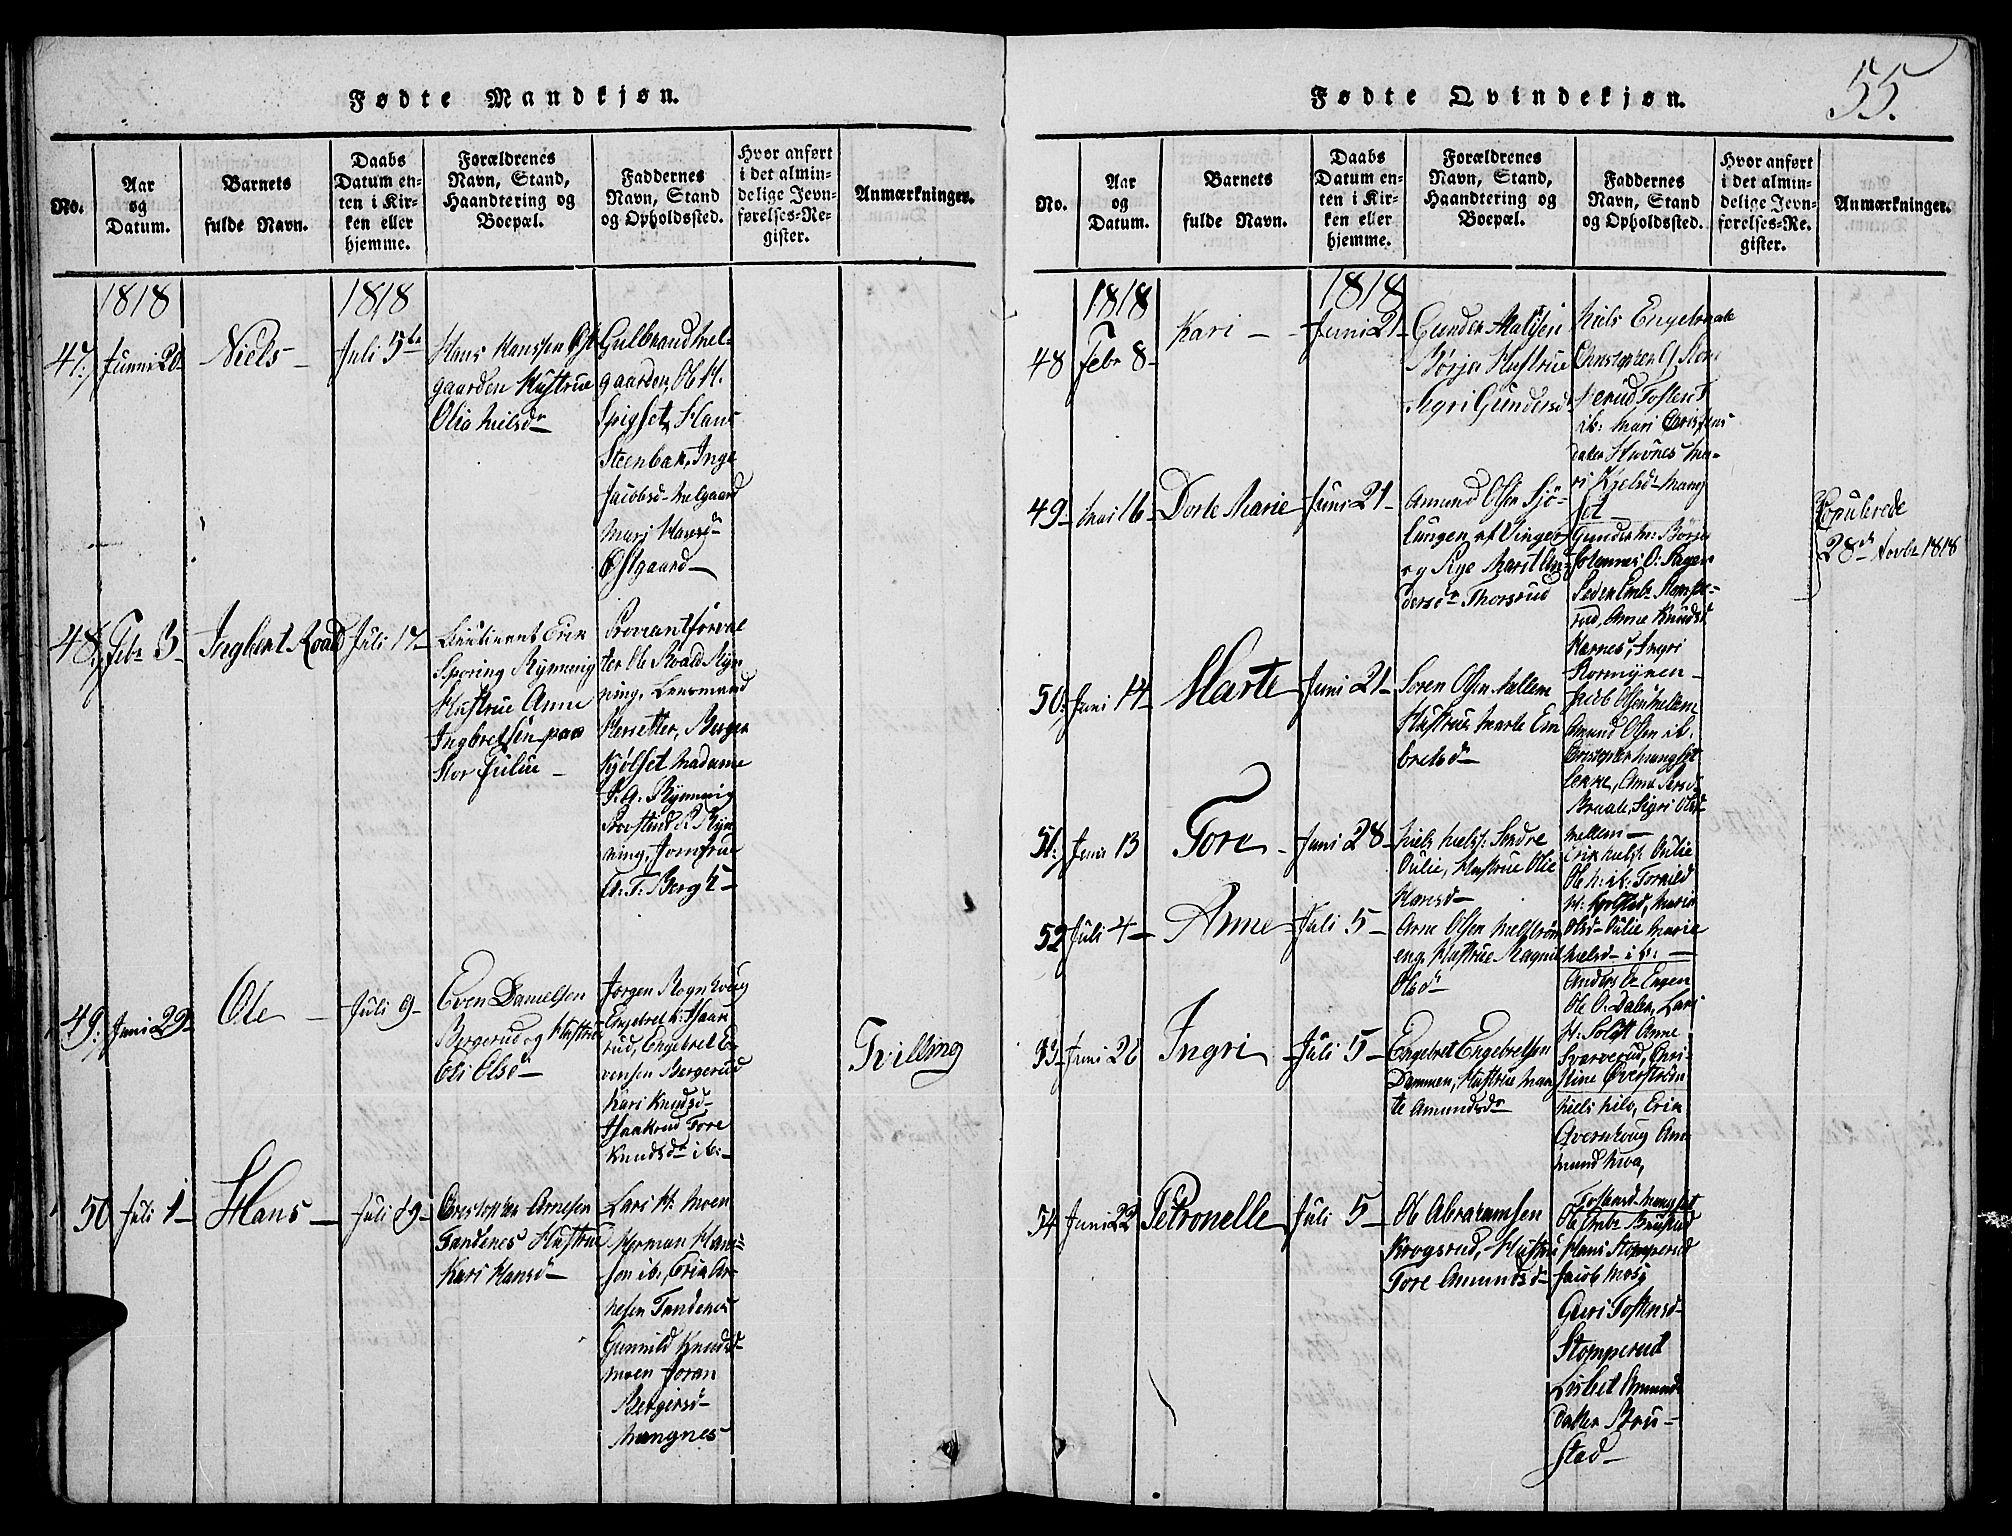 55.
Fødte Mandkjøn.
No.
Aar
og
Datum.
Barnets
fulde Navn.
Daabs
Datum en-
ten i Kir-
ken eller
hjemme.
Forældrenes
Navn, Stand,
Haandtering og
Boepæl.
Faddernes
Navn, Stand
og Opholdssted.
Hvor anført
i det almin-
delige Jevn-
førelses-Re-
gister.
Anmærkninger.
1818
1818
47.
Juni 20
Niels
Juli 5te
Hans Hanssen Øst
gaarden Hustrue
Olia Nielsd
Gulbrand Mel-
gaarden, Ole H.
Spigset, Hans
Steenbak, Inge
Jacobsd Melgaard
Mari Hansd
Østgaard
48.
Febr 3
Ingbert Roald
Juli 17
Lieutinent Erik
Sporing Rynning
Hustrue Anne
Ingbretsen paa
Stor Julie
Proviantforval
ter Ole Roald Ryn
ning, Lensmand
Mersetter, Berger
Kjølset Madame
Rynning
ning, Jomfrue
A. T. Bergh
49.
Juni 29
Ole
Juli 9
Even Danielsen
Bergerud og Hustrue
Eli Olsd
Jorgen Rognhoug
Engebret
rud, Engebret E-
vensen Bergerud
Kari Knudsd
Haakrud Tore
Knudsdr ib.
Tvilling
50
Juli 1
Hans
Juli 19
Christopher Arnesen
Tandenes Hustrue
Kari Hansd
Lars H. Moen
Herman Han-
sen ib, Erik Ar-
nesen Tandenes
Gunnild Knudsd
Moen Joran
Bergersd
Mangnes
Fødte Qvindekjøn.
No.
Aar
og
Datum.
Barnets
fulde Navn.
Daabs
Datum en-
ten i Kir-
ken eller
hjemme.
Forældrenes
Navn, Stand,
Haandtering og
Boepæl.
Faddernes
Navn, Stand
og Opholdssted.
Hvor anført
i det almin-
delige Jevn-
førelses-Re-
gister.
Anmærkninger.
1818
1818
48
Febr 8
Kari
Juni 21
Gunder Madsen
Børjer Hustrue
Sigri Gundersd
Niels Engelsaale
Christopher
nerud Tosten
ib: Mari Christens
datter Stuvnes Ma-
ri Kjelsd Mang
set
49.
Mai 16
Dorte Marie
Juni 21
Amund Olsen Sjø-
lungen af Vinger
og Pige Marit An-
dersdr Thorsrud
Gunder M: Børjer
Johannes O:
Peder Embr. Stompe-
rud, Anne Knudsd
Harnes, Ingri
Kormynen
Copulerede
28de Novbr 1818
50.
Juni 14
Marte
Juni 21
Soren Olsen Mellem
Hustrue Marte Em
bretsd
Jacob Olsen Mellem
Amund Olsen ib.
Christopher Mangset
Løkke, Anne Larsd
Braate, Sigri Olsd
Mellem
51.
Juni 13
Tore
Juni 28
Niels Niels: Søndre
Julie, Hustrue Olie
Hansd
Erik Niels: Julie
Ole N: ib: Tormod
Marie
Olsd Julie Marie
Nielsd ib.
52
Juli 4
Anne
Juli 5
Arne Olsen Melstrøm
eng, Hustrue Magnil
Olsd
Anders O. Engen
Ole O. Dalen, Lars
H: Solst Anne
Sværverud, Chri-
stine Øverstrøm
53
Juni 26
Ingri
Juli 5
Engebret Engebretsen
Dammen, Hustrue Mar
te Amundsdr
Niels Nilo, Erik
Øvernhoug Am-
mund Moa,
Tostensd Mangset
54
Juni 22
Petronelle
Juli 5
Ole Abrahamsen
Krogsrud, Hustru
Tore Amundsd
Ole Embr Brustad
Hans Stomperud
Jacob Mosg
Guri Tostensd
Stomperud
Lisbet Amunds
datter Bru-
stad